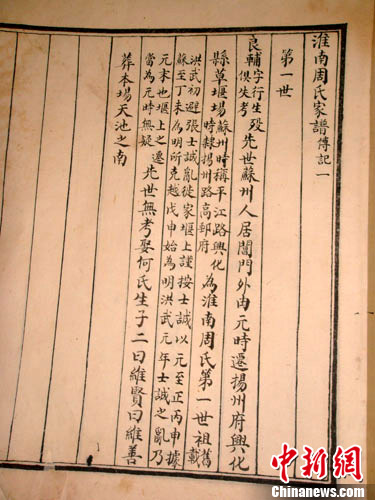 淮南周氏家譜傳記一
第一世
良輔字行生歿俱失考先世蘇州人居閶門外由元時遷揚州府興化
縣草堰場蘇州時稱平江路興化時隸揚州路高郵府為淮南周氏第一世祖舊載
洪武初避張士誠亂徙家堰上謹按士誠以元至正丙申據
蘇至丁未為明所克越戊申始為明洪武元年士誠之亂乃
元末也堰上之遷當為元時無疑先世無考娶何氏生子二曰維賢曰維善
葬本場天池之南
中新网
Chinanews.com